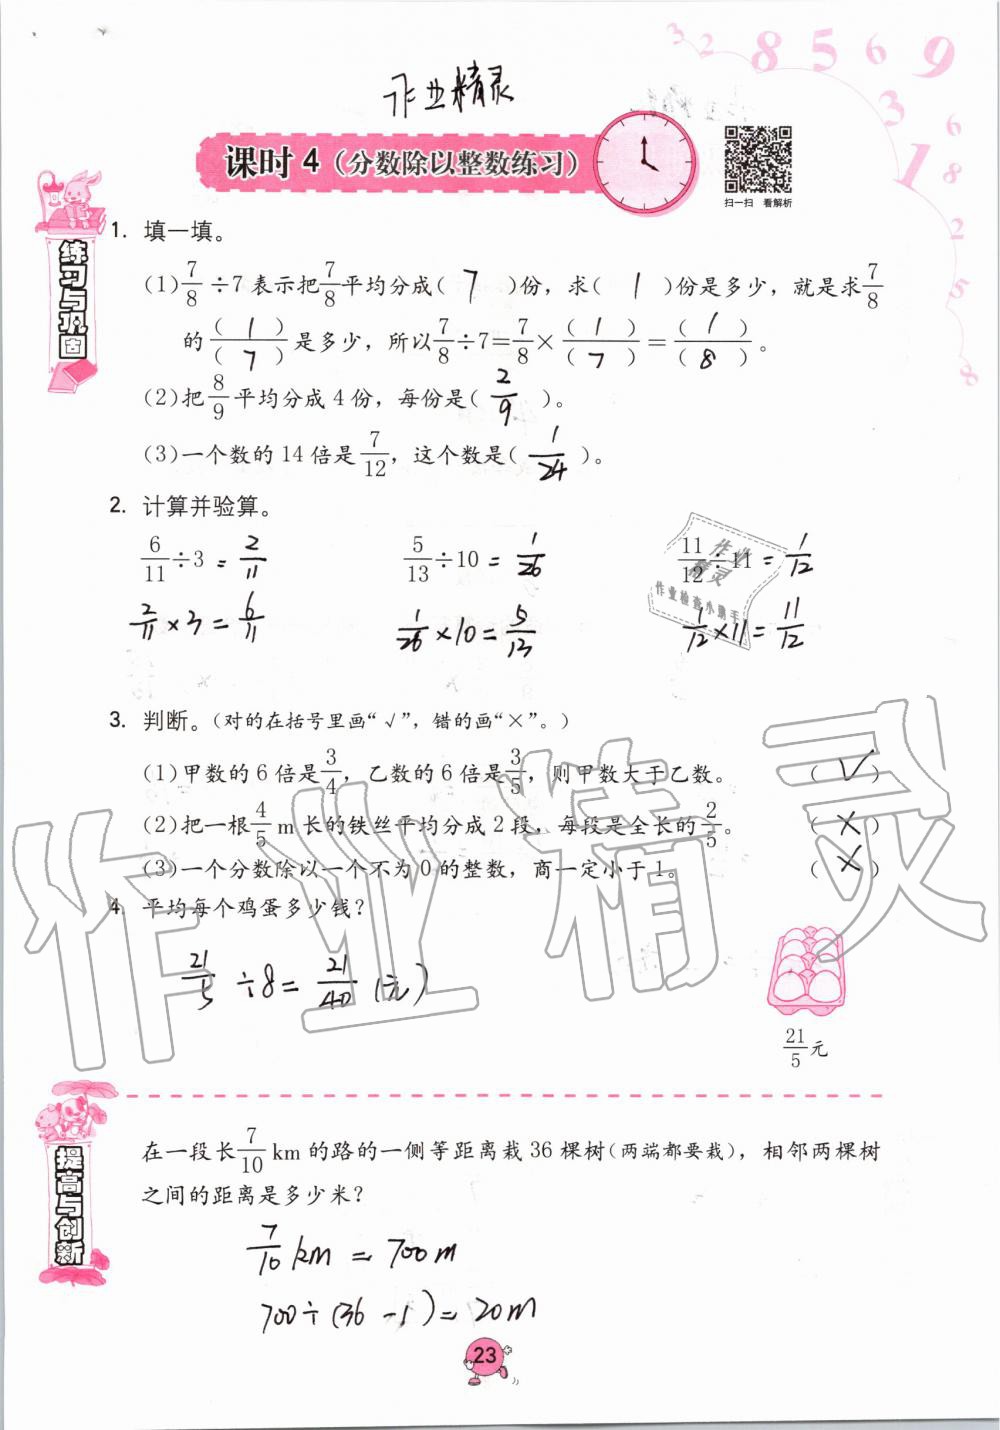 3 2 8 5 6 9
3 6
1 8
2
5
8
作业精灵
课时4(分数除以整数练习)
扫一扫 看解析
练习与巩固
1. 填一填。
(1) 7/8 ÷7表示把 7/8 平均分成( 7 )份，求( 1 )份是多少，就是求 7/8
的 (1)/(7) 是多少，所以 7/8 ÷7= 7/8 × (1)/(7) = (1)/(8) 。
(2)把 8/9 平均分成4份，每份是( 2/9 )。
(3)一个数的14倍是 7/12，这个数是( 1/24 )。
2. 计算并验算。
6/11 ÷3 = 2/11 5/13 ÷10 = 1/26 11/12 ÷11 = 1/12
2/11 ×3 = 6/11 1/26 ×10 = 5/13 1/12 ×11 = 11/12
作业
精灵
作业检查小助手
3. 判断。(对的在括号里画“√”，错的画“×”。)
(1)甲数的6倍是 3/4，乙数的6倍是 3/5，则甲数大于乙数。 ( √ )
(2)把一根 4/5 m长的铁丝平均分成2段，每段是全长的 2/5。 ( × )
(3)一个分数除以一个不为0的整数，商一定小于1。 ( × )
4. 平均每个鸡蛋多少钱？
21/5 ÷8 = 21/40 (元)
21/5 元
作业精灵
提高与创新
在一段长 7/10 km的路的一侧等距离栽36棵树(两端都要栽)，相邻两棵树
之间的距离是多少米？
7/10 km = 700m
700÷(36-1)=20m
23